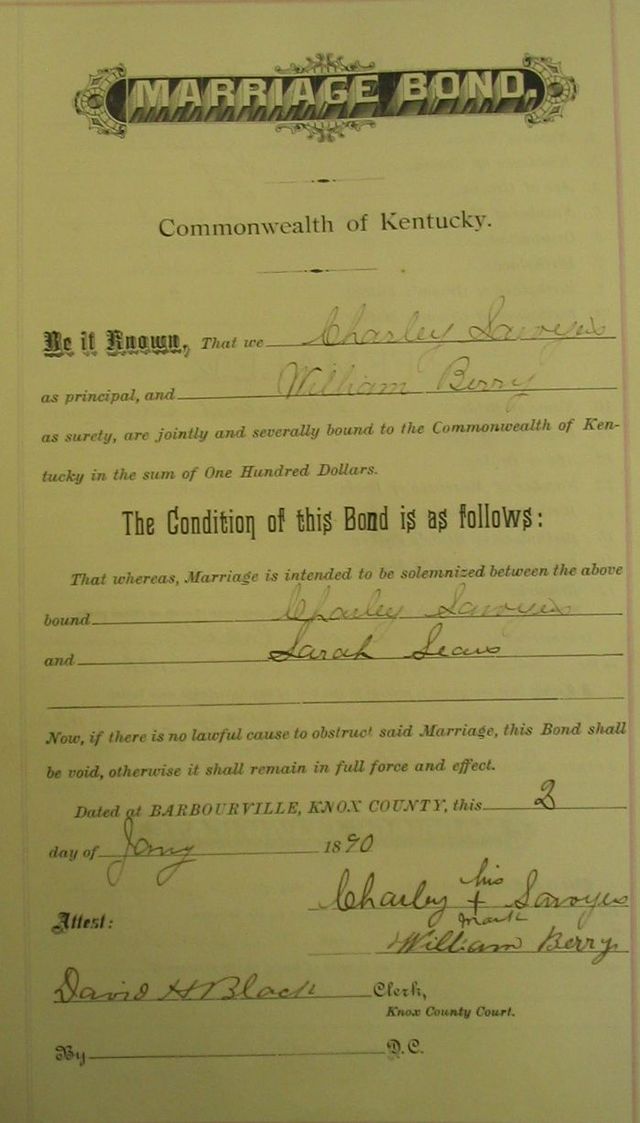 MARRIAGE BOND.
Commonwealth of Kentucky.
Be it Known, That we Charley Sawyers
as principal, and William Berry
as surety, are jointly and severally bound to the Commonwealth of Ken-
tucky in the sum of One Hundred Dollars.
The Condition of this Bond is as follows:
That whereas, Marriage is intended to be solemnized between the above
bound Charley Sawyers
and Sarah Sears
Now, if there is no lawful cause to obstruct said Marriage, this Bond shall
be void, otherwise it shall remain in full force and effect.
Dated at BARBOURVILLE, KNOX COUNTY, this 2
day of Jany 1890
his
Charley + Sawyers
mark
Attest:
William Berry
David H Black Clerk,
Knox County Court.
By D. C.